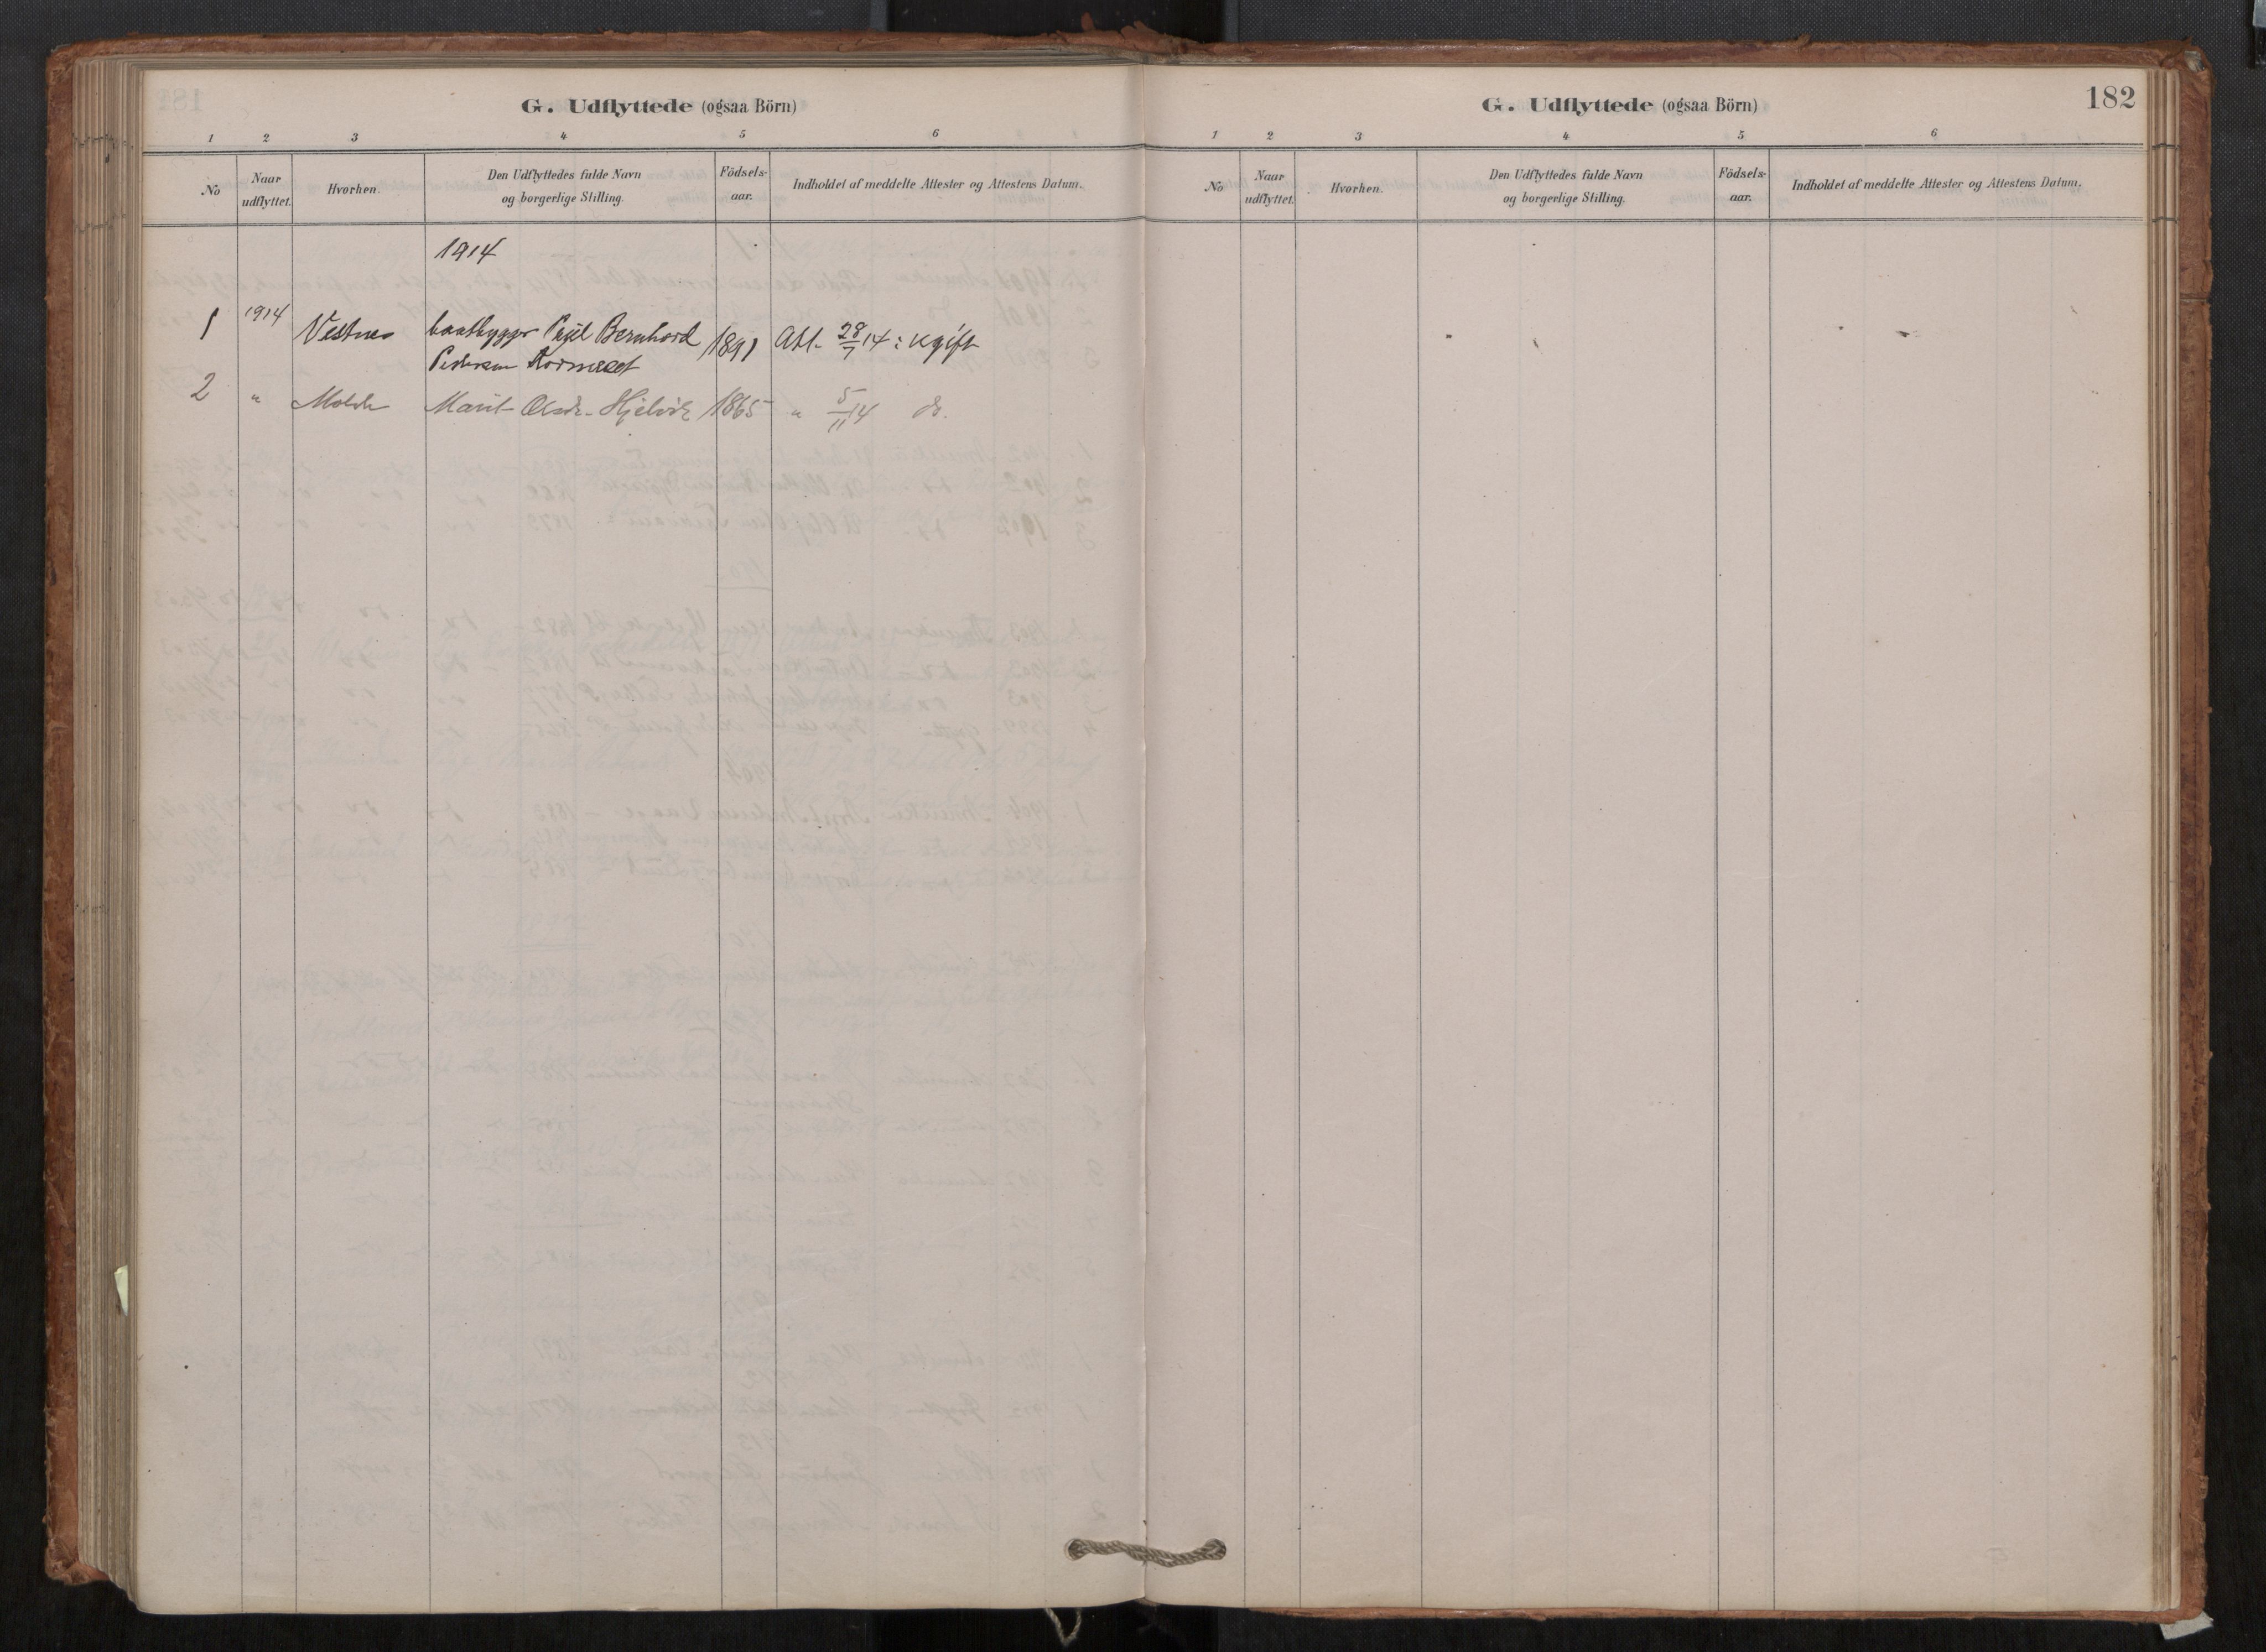 G. Udflyttede (ogsaa Börn)
1 2 3 4 5 6
No
Naar udflyttet.
Hvorhen.
Den Udflyttedes fulde Navn og borgerlige Stilling.
Födsels-aar.
Indholdet af meddelte Attester og Attestens Datum.
1914
1 1914 Vestnes baatbygger Bernhard 1891 Att. 28/7 14: Kgift
Pedersen
2 " Molde Marit Olsdr. Hjelvik 1865 " 5/11 14 do.
G. Udflyttede (ogsaa Börn)
182
1 2 3 4 5 6
No
Naar udflyttet.
Hvorhen.
Den Udflyttedes fulde Navn og borgerlige Stilling.
Födsels-aar.
Indholdet af meddelte Attester og Attestens Datum.